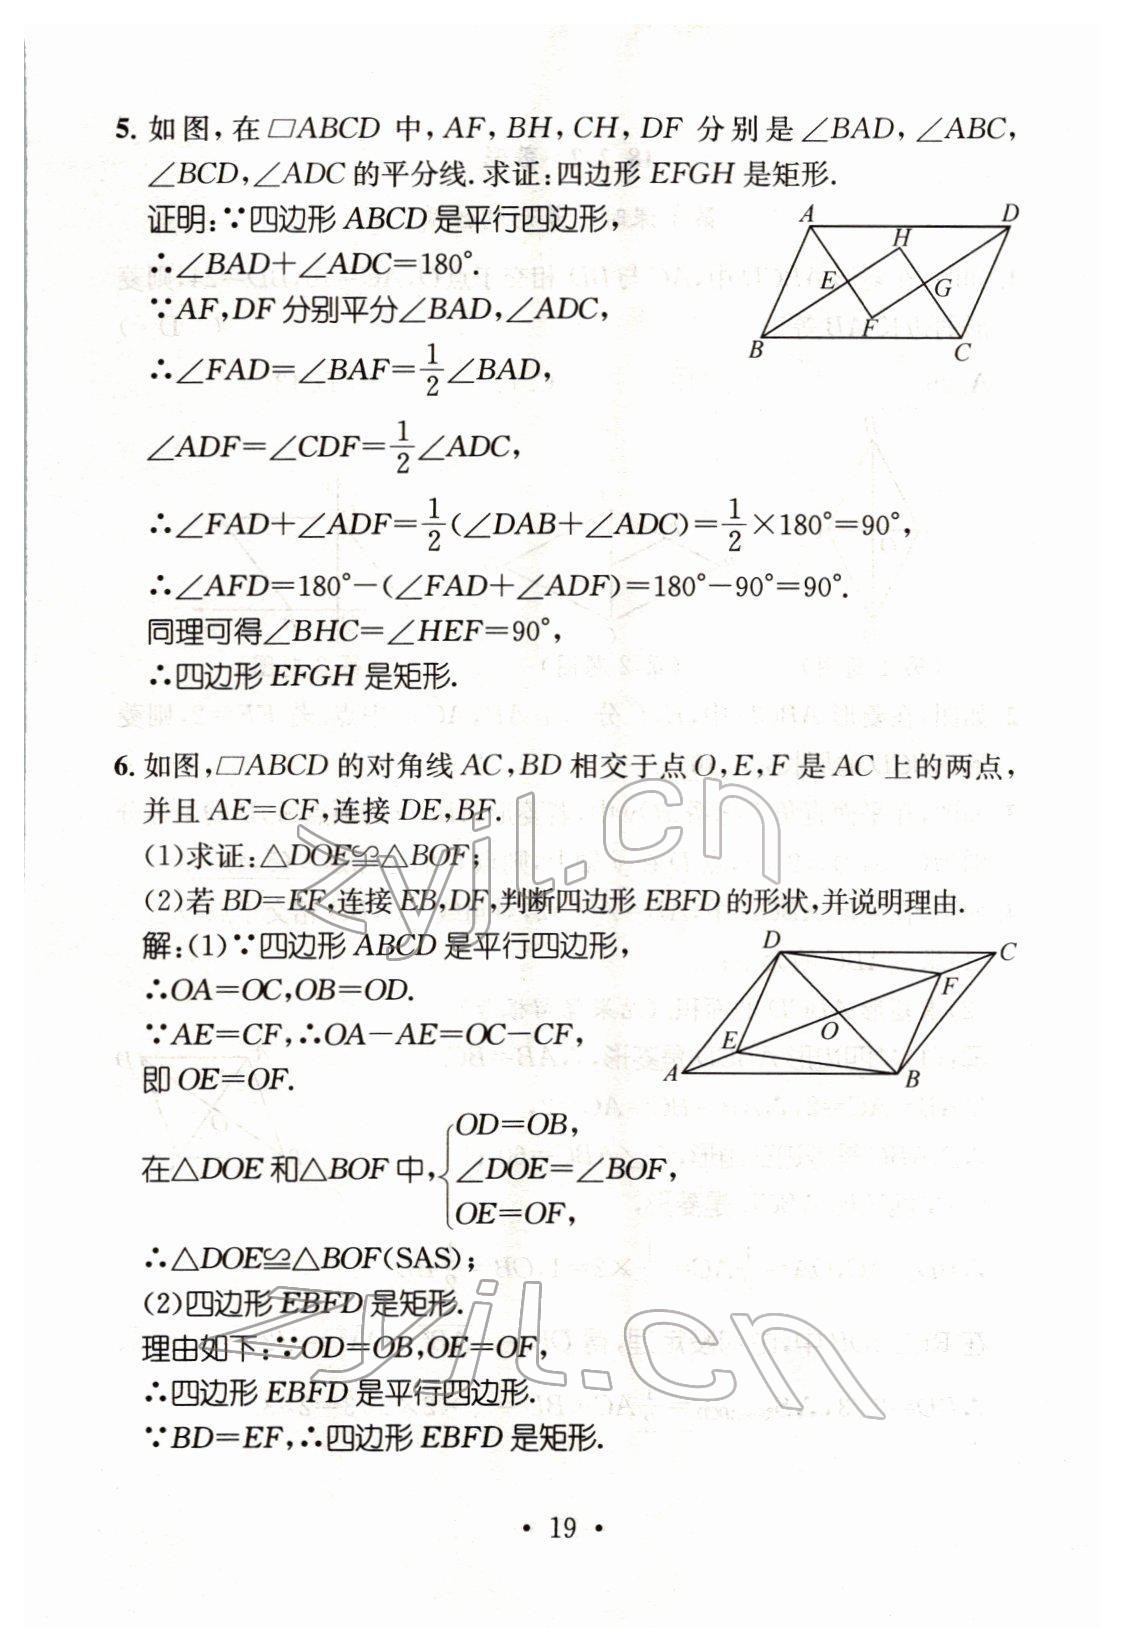 5. 如图,在▱ABCD 中,AF,BH,CH,DF 分别是∠BAD,∠ABC,
∠BCD,∠ADC 的平分线.求证:四边形 EFGH 是矩形.
证明:∵四边形 ABCD 是平行四边形,
∴∠BAD+∠ADC=180°.
∵AF,DF 分别平分∠BAD,∠ADC,
∴∠FAD=∠BAF=1/2∠BAD,
∠ADF=∠CDF=1/2∠ADC,
A
D
H
E
G
F
B
C
∴∠FAD+∠ADF=1/2(∠DAB+∠ADC)=1/2×180°=90°,
∴∠AFD=180°-(∠FAD+∠ADF)=180°-90°=90°.
同理可得∠BHC=∠HEF=90°,
∴四边形 EFGH 是矩形.
6. 如图,▱ABCD 的对角线 AC,BD 相交于点 O,E,F 是 AC 上的两点,
并且 AE=CF,连接 DE,BF.
(1)求证:△DOE≌△BOF;
(2)若 BD=EF,连接 EB,DF,判断四边形 EBFD 的形状,并说明理由.
解:(1)∵四边形 ABCD 是平行四边形,
∴OA=OC,OB=OD.
∵AE=CF,∴OA-AE=OC-CF,
即 OE=OF.
D
C
F
O
E
A
B
在△DOE 和△BOF 中,{OD=OB,
∠DOE=∠BOF,
OE=OF,
∴△DOE≌△BOF(SAS);
(2)四边形 EBFD 是矩形.
理由如下:∵OD=OB,OE=OF,
∴四边形 EBFD 是平行四边形.
∵BD=EF,∴四边形 EBFD 是矩形.
zyjl.cn
zyjl.cn
· 19 ·